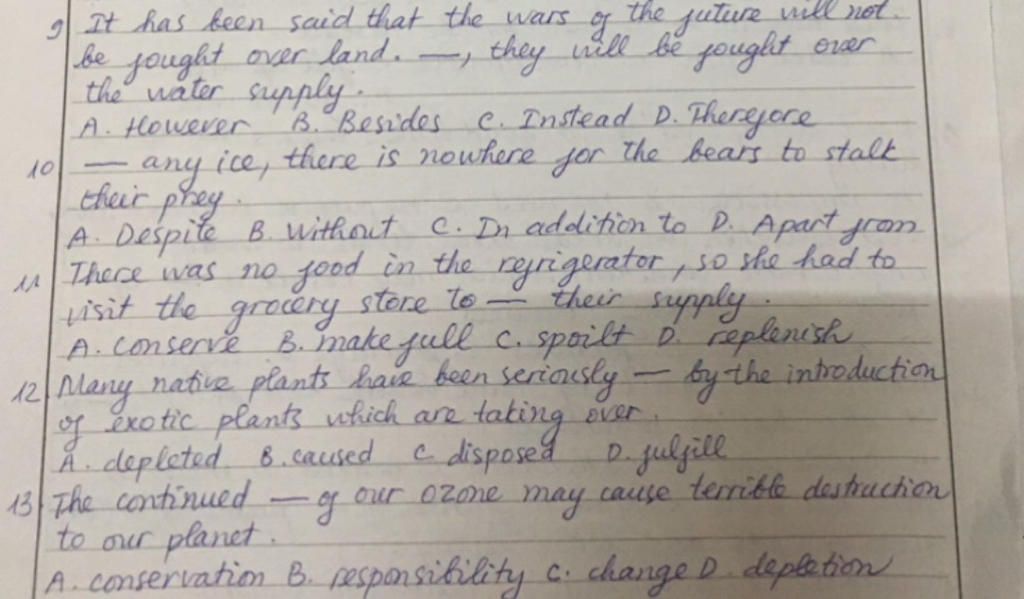 9 It has been said that the wars of the future will not
be fought over land. —, they will be fought over
the water supply.
A. However B. Besides C. Instead D. Therefore
10 — any ice, there is nowhere for the bears to stalk
their prey.
A. Despite B. Without C. In addition to D. Apart from
11 There was no food in the refrigerator, so she had to
visit the grocery store to — their supply.
A. conserve B. make full C. spoilt D. replenish
12 Many native plants have been seriously — by the introduction
of exotic plants which are taking over.
A. depleted B. caused C disposed D. fulfill
13 The continued — of our ozone may cause terrible destruction
to our planet.
A. conservation B. responsibility C. change D. depletion